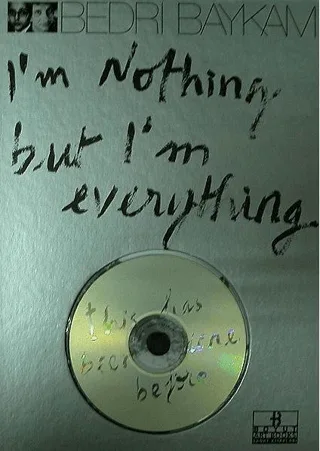 BEDRI BAYKAM
I'm Nothing
but I'm
everything
this has
been done
before
BOYUT
ART BOOKS